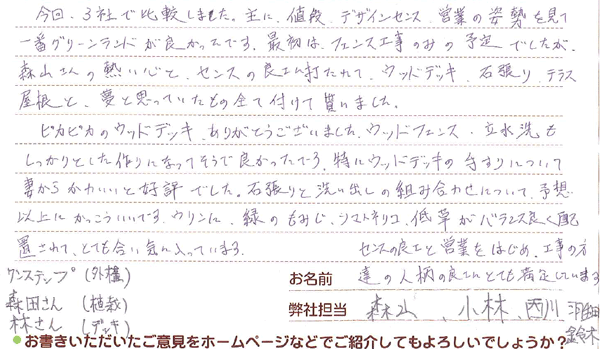 今回、3社で比較しました。主に、値段、デザインセンス、営業の姿勢を見て
一番グリーンランドが良かったです。最初は、フェンス工事のみの予定でしたが、
森山さんの熱い心と、センスの良さに打たれて、ウッドデッキ、石張り、テラス
屋根と、夢と思っていたもの全て付けて貰いました。
ピカピカのウッドデッキ、ありがとうございました。ウッドフェンス・立水洗も
しっかりとした作りになってそうで良かったです。特にウッドデッキの手すりについて
妻からかわいいと好評でした。石張りと洗い出しの組み合わせについて、予想
以上にかっこういいです。ウリンに、緑のもみじ、シマトネリコ、低草がバランス良く配
置されて、とても合い気に入っています。
センスの良さと営業をはじめ、工事の方
達の人柄の良さにとても満足しています
ワンステップ(外構)
森田さん(植栽)
林さん(デッキ)
お名前
弊社担当 森山、小林、西川、羽田
鈴木
●お書きいただいたご意見をホームページなどでご紹介してもよろしいでしょうか?